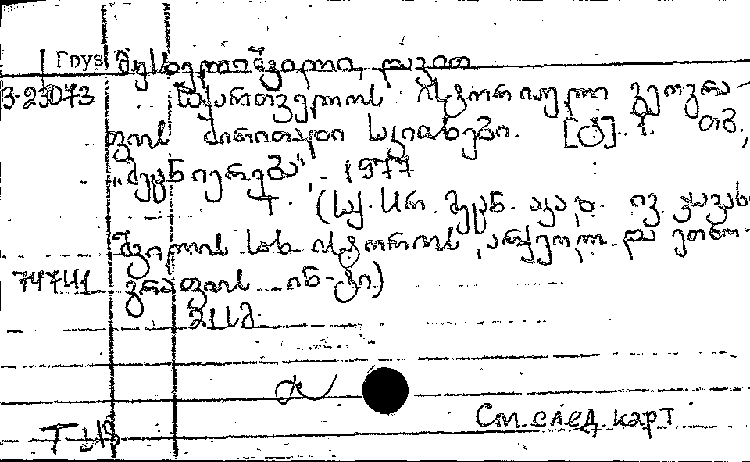 Груз მუსხელიშვილი, დავით
3-23073 საქართველოს ისტორიული გეოგრა-
ფიის ძირითადი საკითხები. [ტ]. 1. თბ.,
„მეცნიერება“, 1977
т. (საქ. სსრ მეცნ. აკად. ივ ჯავახი
შვილის სახ ისტორიის, არქეოლ და ეთნო-
74741 გრაფიის ინ-ტი)
См. след. карт